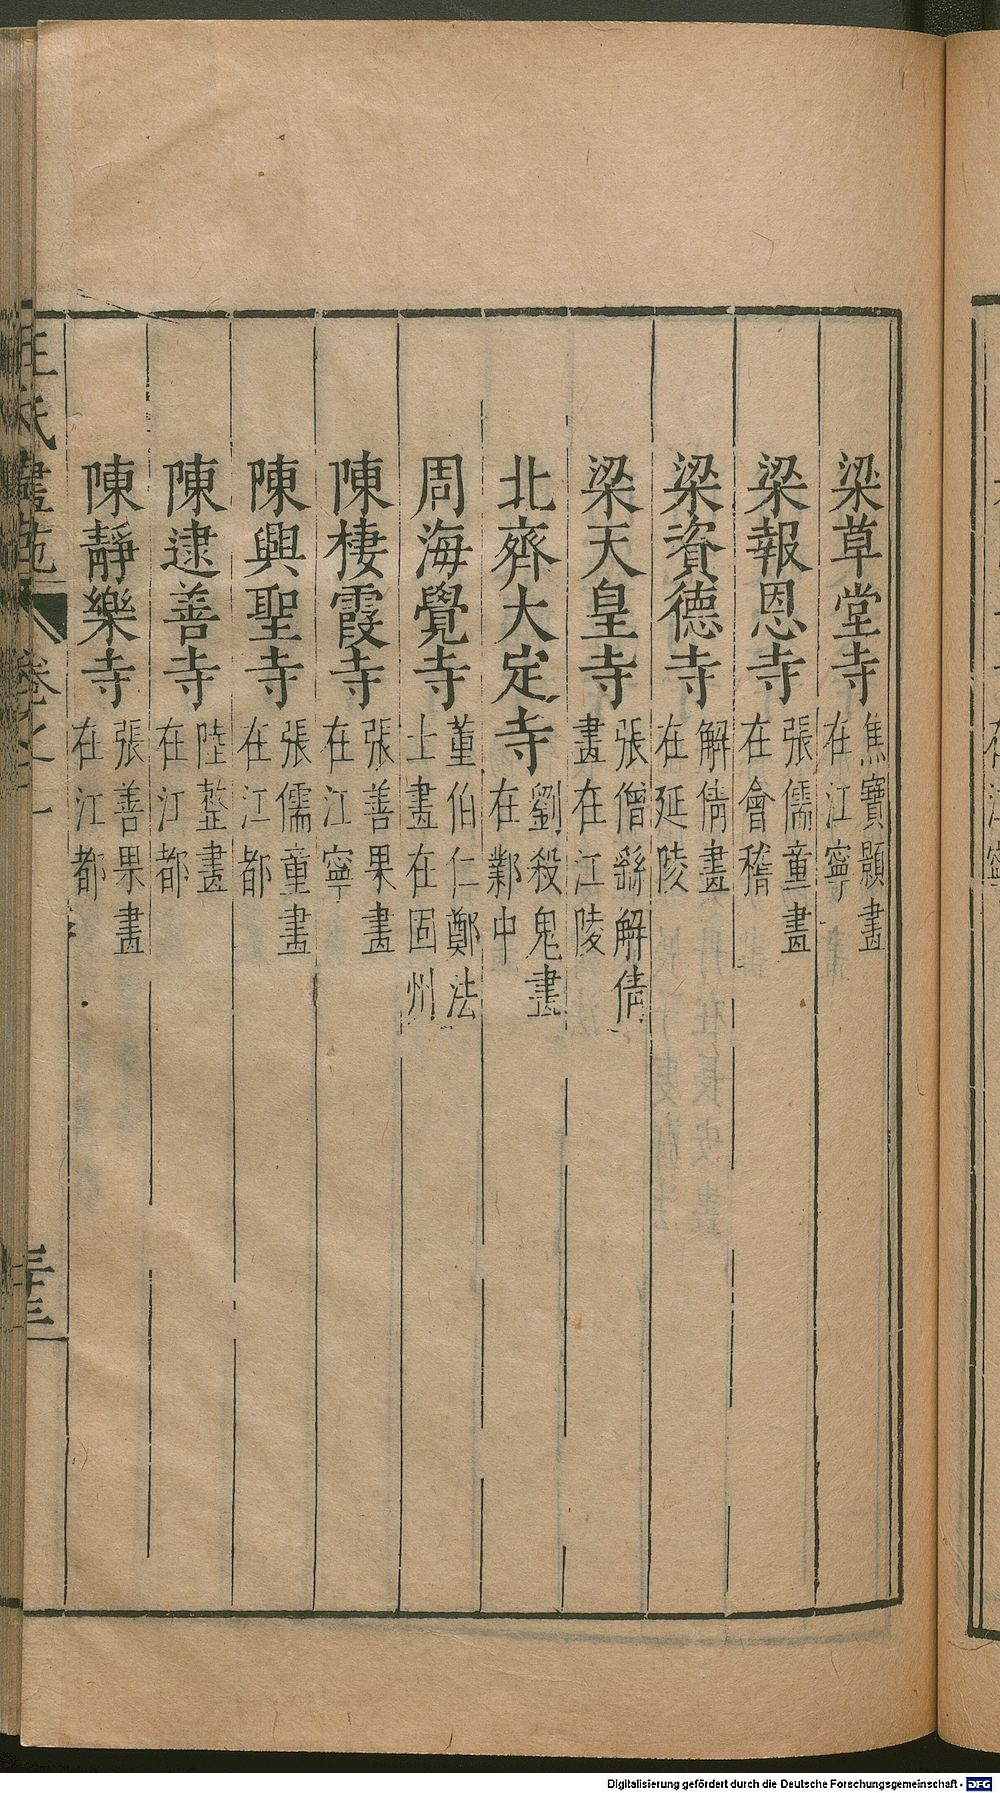 梁草堂寺 焦寶顯畫在江寧
梁報恩寺 張儒童畫在會稽
梁資德寺 解倩畫在延陵
梁天皇寺 張僧繇解倩畫在江陵
北齊大定寺 劉殺鬼畫在鄴中
周海覺寺 董伯仁鄭法士畫在固州
陳棲霞寺 張善果畫在江寧
陳興聖寺 張儒童畫在江都
陳逮善寺 陸整畫在江都
陳靜樂寺 張善果畫在江都
王氏畫苑 卷之一 三十三
Digitalisierung gefördert durch die Deutsche Forschungsgemeinschaft - DFG